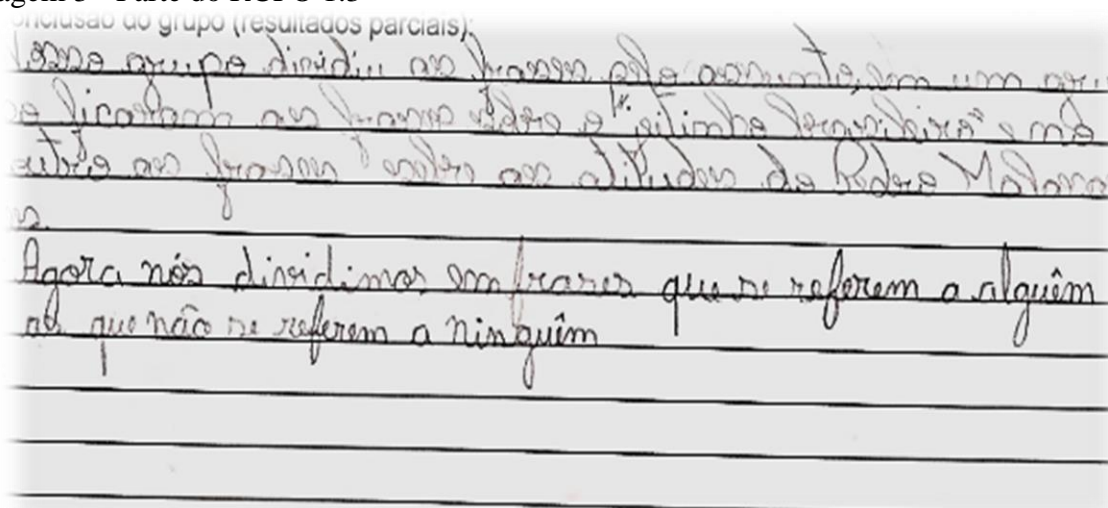 agem 3 - Parte do RCPG 1.3
onclusão do grupo (resultados parciais):
osso grupo dividiu as frases pelo assunto, em um gru
o ficaram as frases sobre o "jeitinho brasileiro" e no
outro as frases sobre as atitudes do Pedro Malasa
s.
Agora nós dividimos em frases que se referem a alguêm
as que não se referem a ninguêm